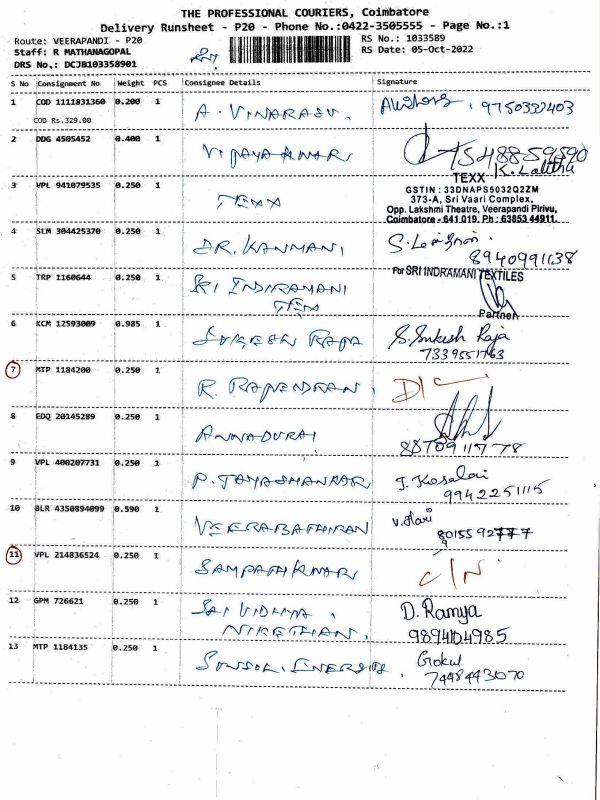 THE PROFESSIONAL COURIERS, Coimbatore
Delivery Runsheet - P20 - Phone No.:0422-3505555 - Page No.:1
Route: VEERAPANDI - P20
RS No.: 1033589
Staff: R MATHANAGOPAL
RS Date: 05-Oct-2022
DRS No.: DCJB103358901
S No Consignment No Weight PCS Consignee Details Signature
1 COD 1111831360 0.200 1 A. VINARASU. 9750332403
COD Rs.329.00
2 DDG 4505452 0.400 1 VIJAYAKUMAR
K. Lalitha
3 VPL 941079535 0.250 1 TEXX TEXX
GSTIN : 33DNAPS5032Q2ZM
373-A, Sri Vaari Complex,
Opp. Lakshmi Theatre, Veerapandi Pirivu,
Coimbatore - 641 019. Ph : 63853 44911.
4 SLM 304425370 0.250 1 DR. KANMANI,
8940991138
5 TRP 1160644 0.250 1 SRI INDIRAMANI For SRI INDRAMANI TEXTILES
TEX
Partner
6 KCM 12593009 0.985 1 SUKESH RAJA S. Sukesh Raja
7339551763
7 MTP 1184200 0.250 1 R. RAJENDRAN. D/C
8 EDQ 20145289 0.250 1 ANNADURAI
8870911578
9 VPL 400207731 0.250 1 P. JAYASHANKAR J. Kosalai
9942251115
10 BLR 4350894099 0.590 1 VEERABATHIRAN V. Hari
8015592777
11 VPL 214836524 0.250 1 SAMPATHKUMAR C/N
12 GPM 726621 0.250 1 SAI VIDHYA. D. Ramya
NIKETHAN. 9894104985
13 MTP 1184135 0.250 1 Gokul
7448443070